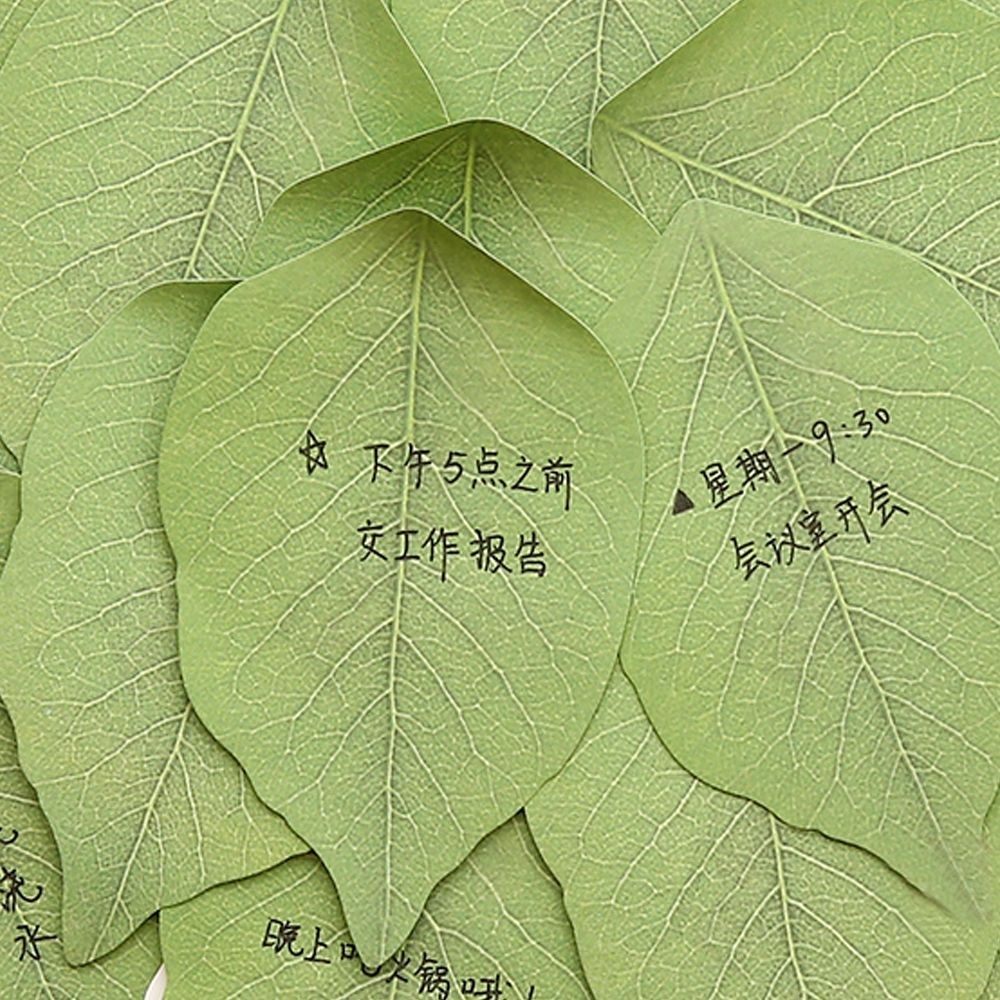 ☆ 下午5点之前
交工作报告
▲星期一9:30
会议室开会
浇
水
晚上吃火锅哦!